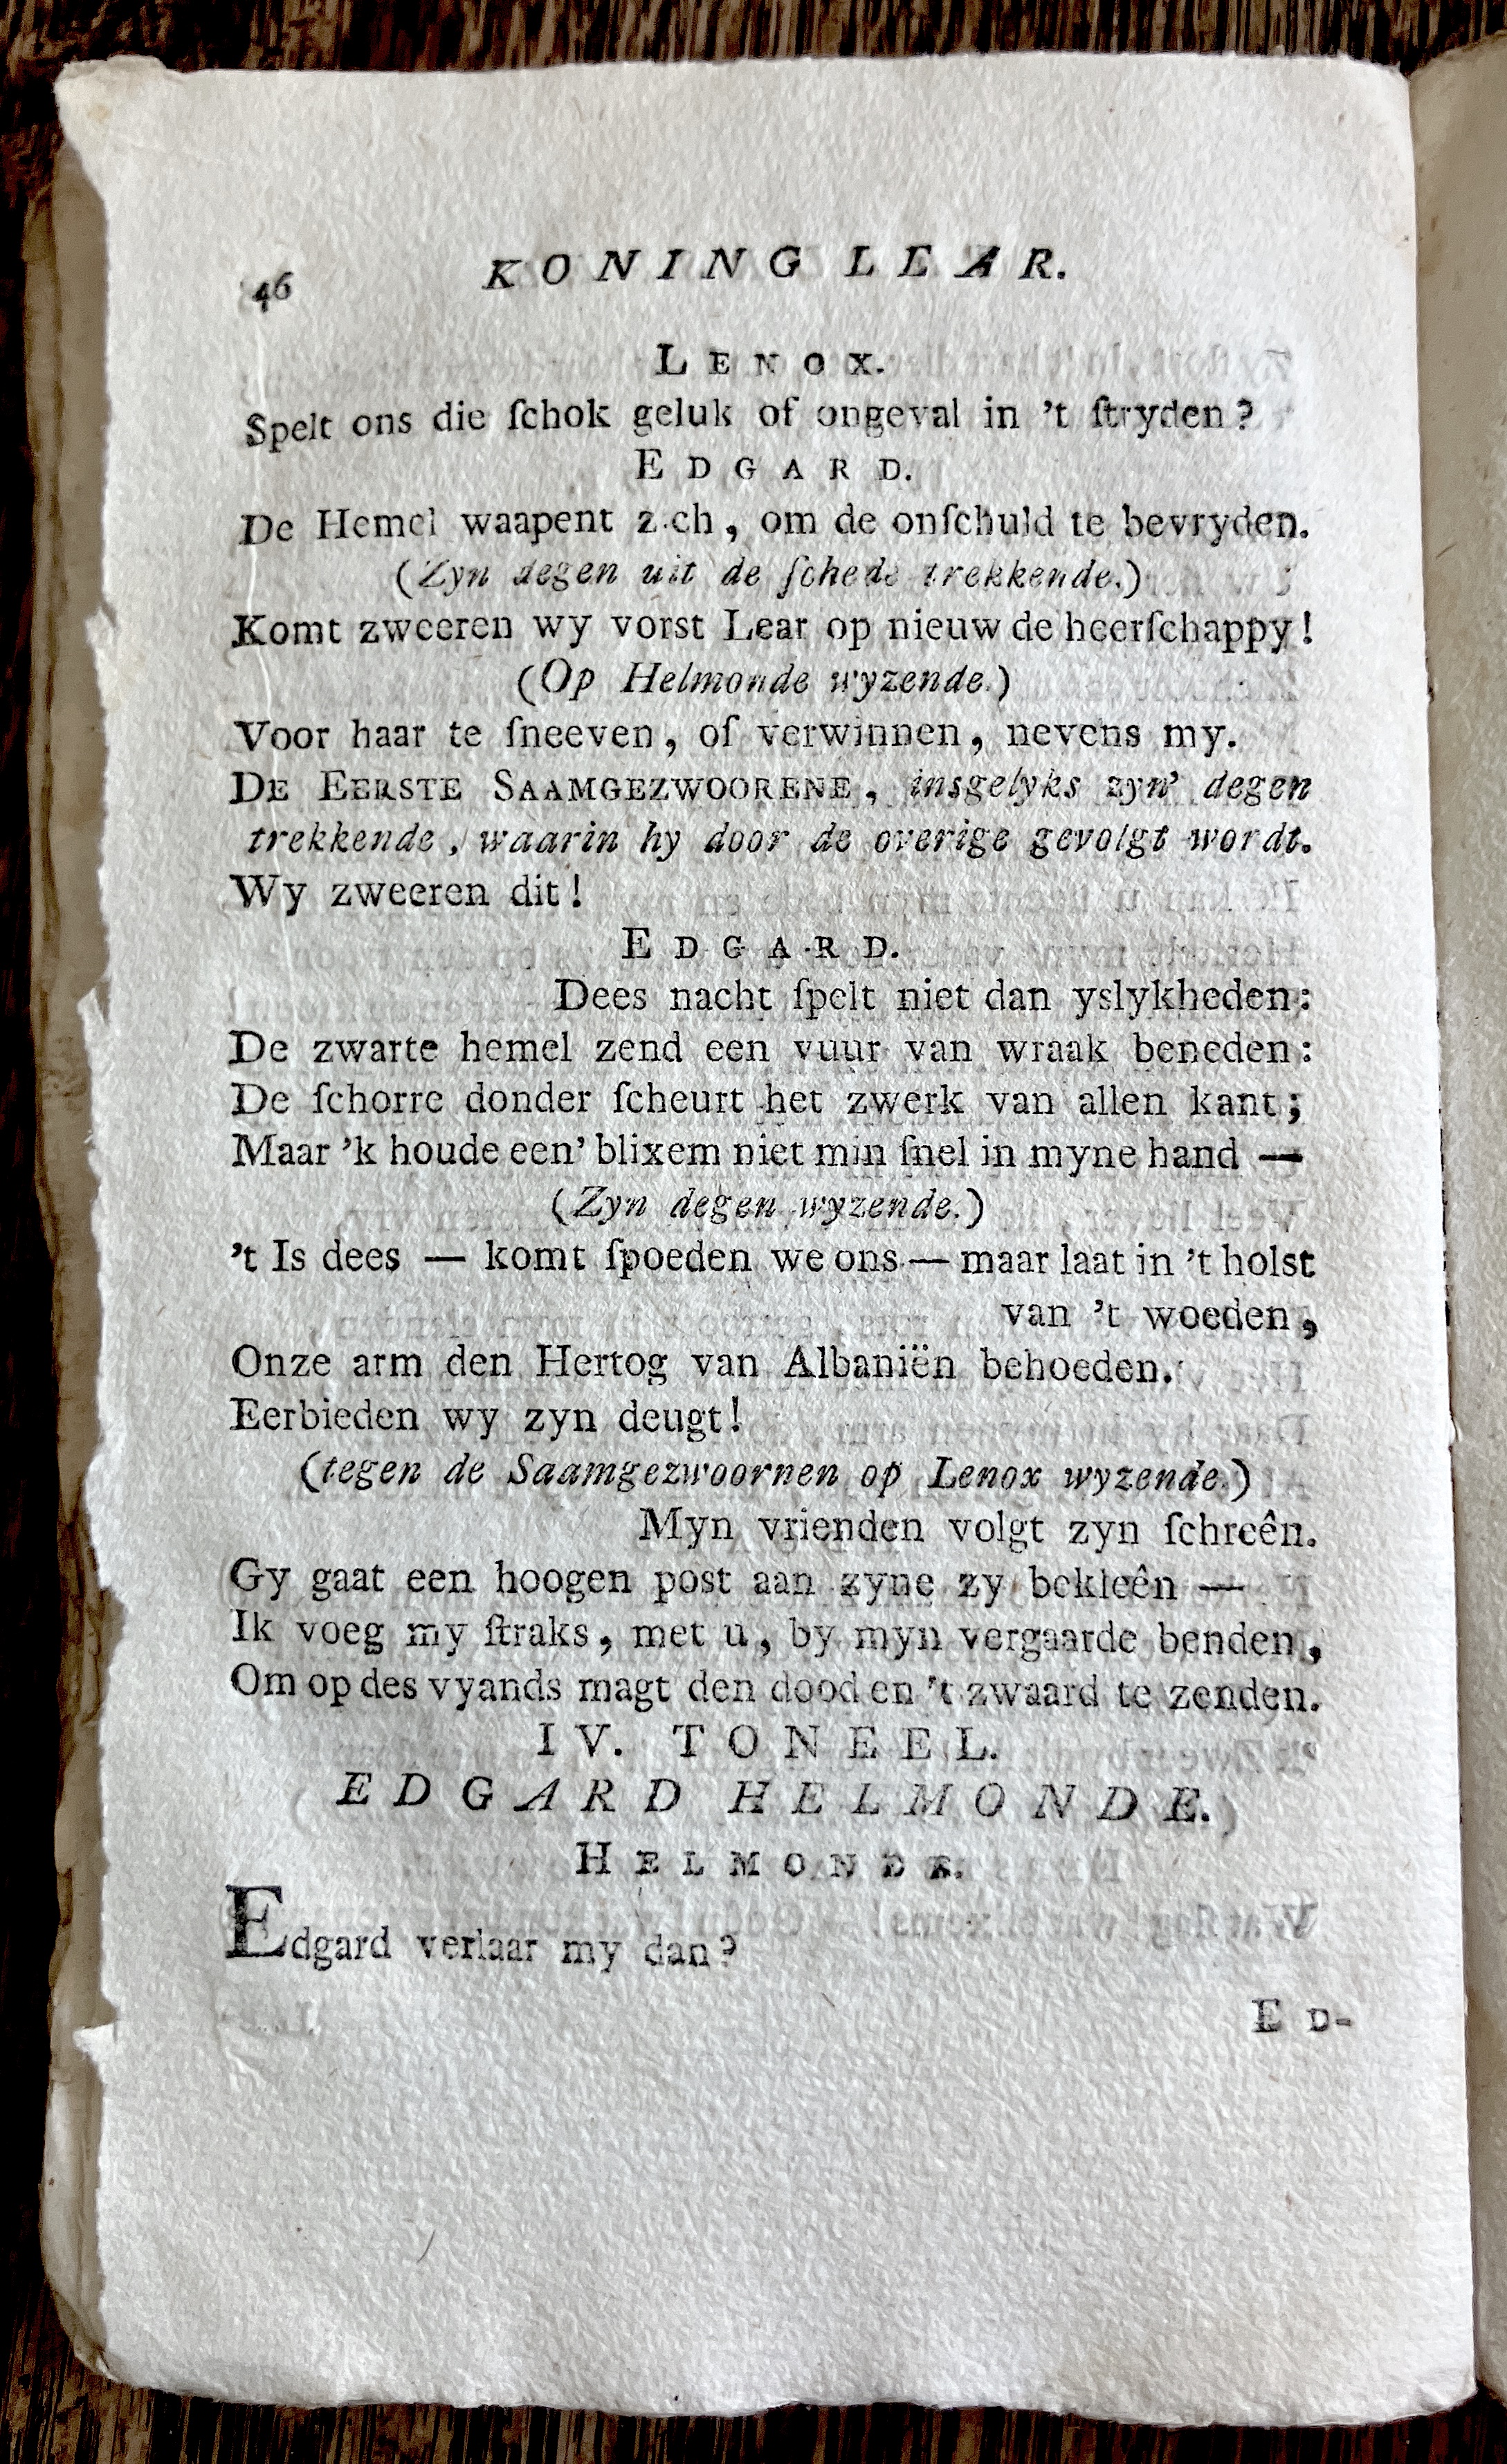 46 KONING LEAR.
LENOX.
Spelt ons die ſchok geluk of ongeval in 't ſtryden?
EDGARD.
De Hemel waapent zich, om de onſchuld te bevryden.
(Zyn degen uit de ſchede trekkende.)
Komt zweeren wy vorst Lear op nieuw de heerſchappy!
(Op Helmonde wyzende.)
Voor haar te ſneeven, of verwinnen, nevens my.
DE EERSTE SAAMGEZWOORENE, insgelyks zyn' degen
trekkende, waarin hy door de overige gevolgt wordt.
Wy zweeren dit!
EDGARD.
Dees nacht ſpelt niet dan yslykheden:
De zwarte hemel zend een vuur van wraak beneden:
De ſchorre donder ſcheurt het zwerk van allen kant;
Maar 'k houde een' blixem niet min ſnel in myne hand —
(Zyn degen wyzende.)
't Is dees — komt ſpoeden we ons — maar laat in 't holst
van 't woeden,
Onze arm den Hertog van Albaniën behoeden.
Eerbieden wy zyn deugt!
(tegen de Saamgezwoornen op Lenox wyzende.)
Myn vrienden volgt zyn ſchreên.
Gy gaat een hoogen post aan zyne zy bekleên —
Ik voeg my ſtraks, met u, by myn vergaarde benden,
Om op des vyands magt den dood en 't zwaard te zenden.
IV. TONEEL.
EDGARD HELMONDE.
HELMONDE.
Edgard verlaar my dan?
ED-